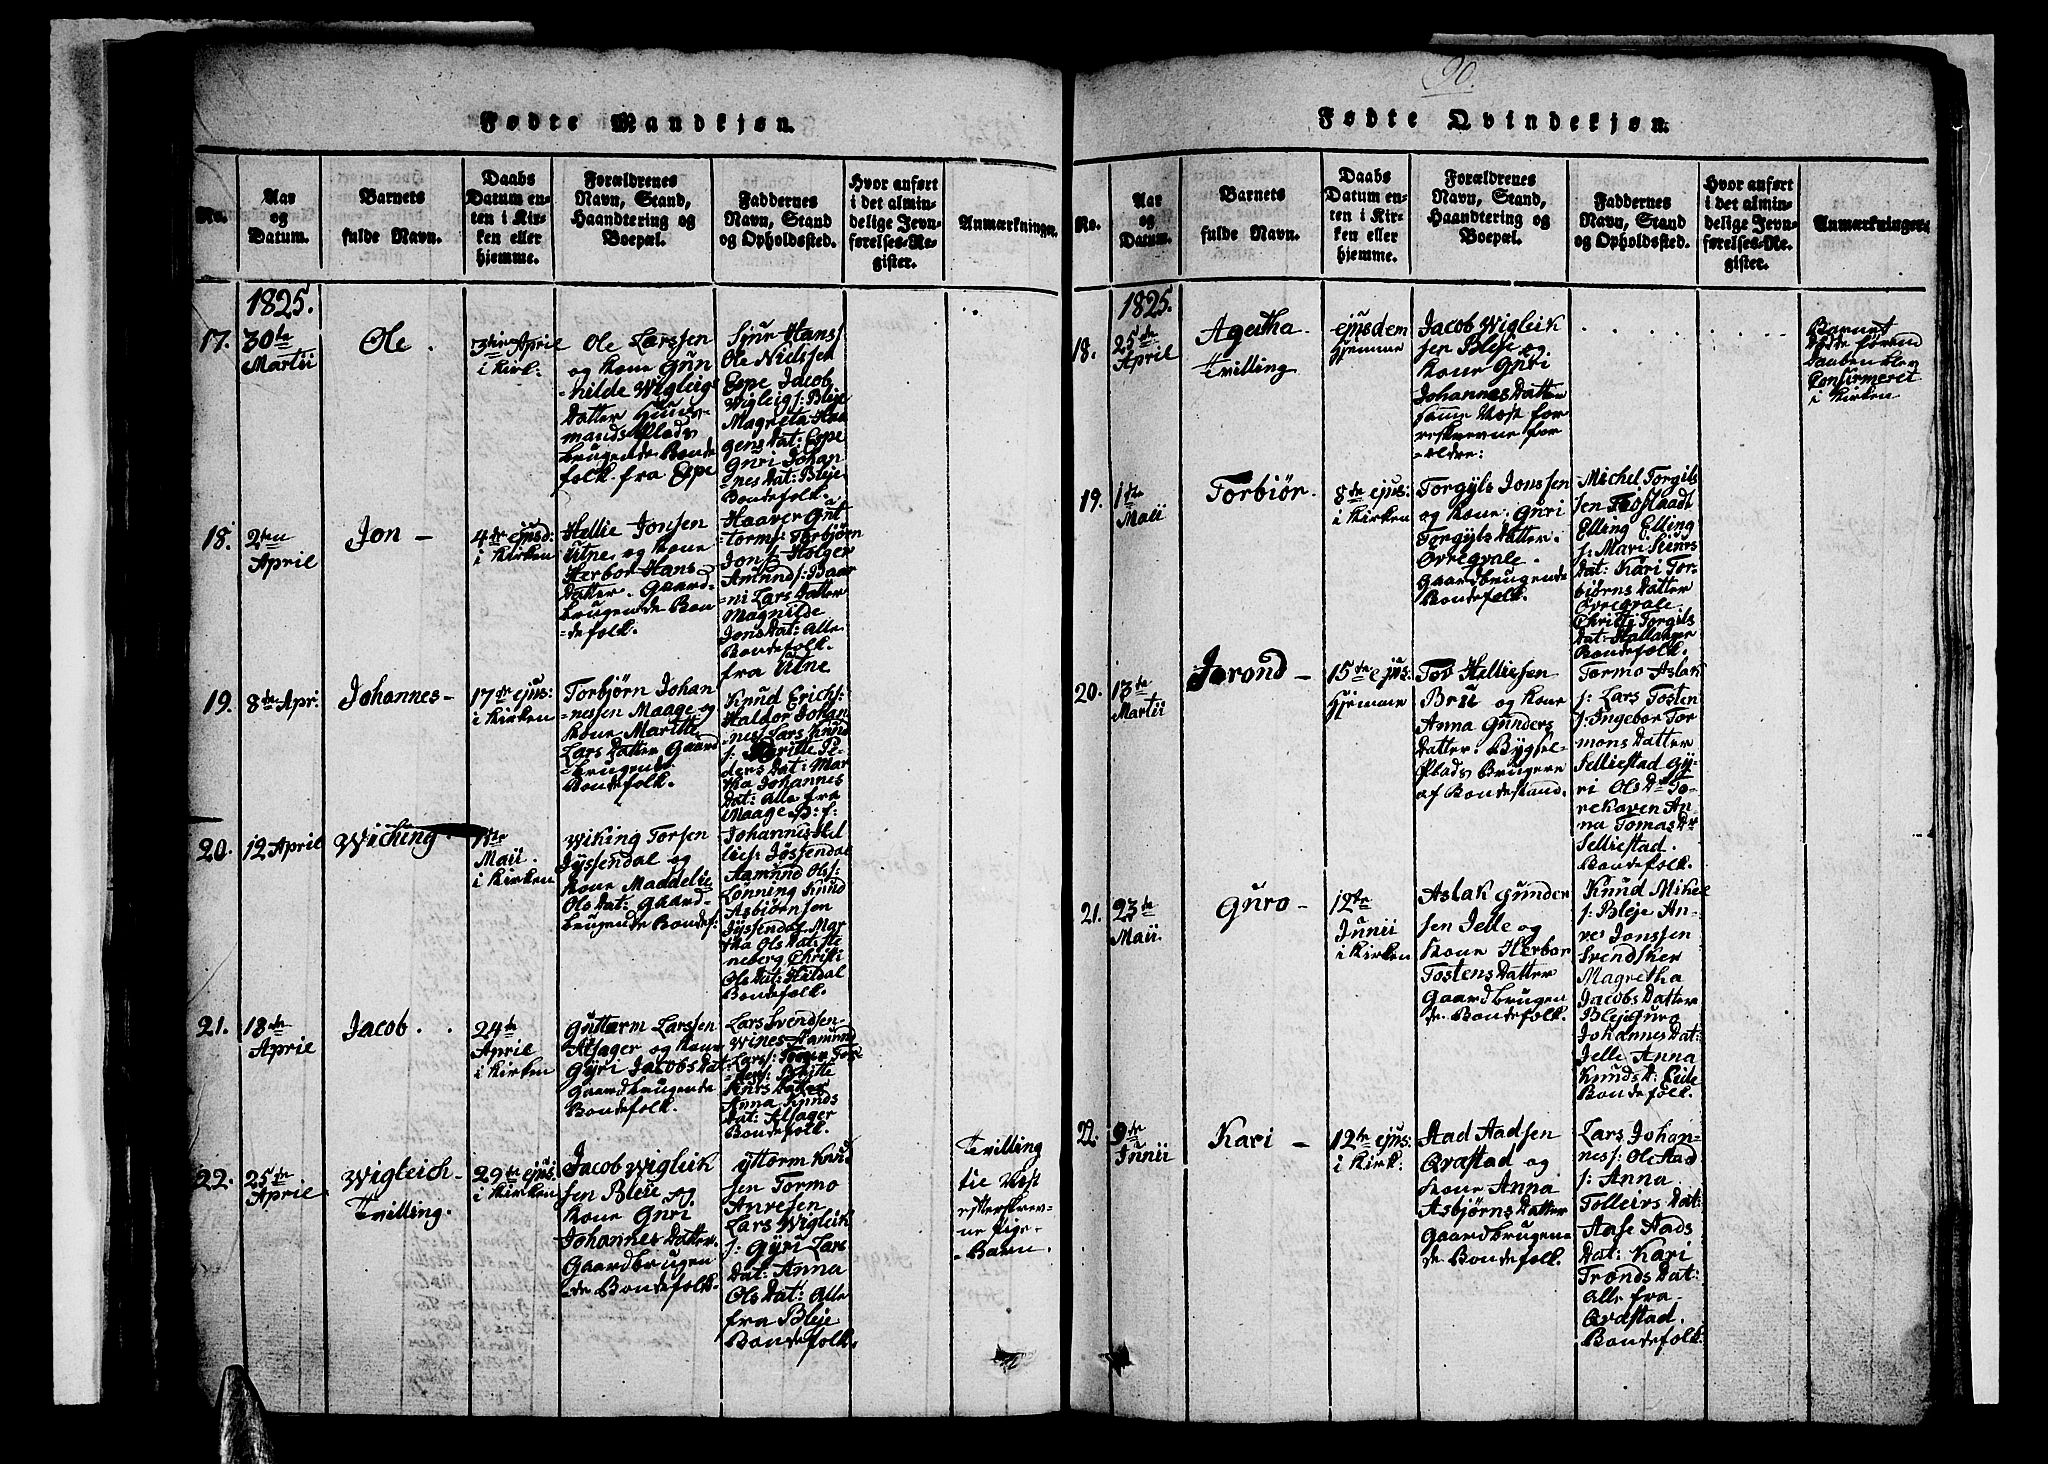 90.
Fødte Mandkjøn.
No.
Aar
og
Datum.
Barnets
fulde Navn.
Daabs
Datum en-
ten i Kir-
ken eller
hjemme.
Forældrenes
Navn, Stand,
Haandtering og
Boepæl.
Faddernes
Navn, Stand
og Opholdssted.
Hvor anført
i det almin-
delige Jevn-
førelses-Re-
gister.
Anmærkninger.
1825.
17.
30te
Martii
Ole.
3die April
i Kirk:
Ole Larssen
og Kone Gun
-hilde Wigleig
Datter Huus-
mands Plads
brugende Bonde
folk. fra Espe
Sjur Hans
Ole Nielssen
Espe Jacob
Wigleigs: Bleje
Magreta Haa
gens Dat: Espe
Guri Johan
-nes Dat: Bleje
Bondefolk.
18.
2den
April
Jon -
4de ejusd:
i Kirken
Hellie Jonsen
Utne og Kone
Herbor Hans
Datter. Gaard-
brugende Bon
-defolk.
Haaver Gut
torms: Torbjørn
Jons: Holger
Amunds: Baar
-ni Lars Datter
Magnilde
Jons Dat: Alle
Bondefolk.
fra Utne
19.
8de Apr:
Johannes -
17de ejus:
i Kirken
Torbjørn Johan
-nessen Maage og
Kone Maritte
Lars Datter Gaard
-brugende
Bondefolk.
Knud Erichs:
Haldor Johan
-nes: Lars Knud
s: Maritte Pe-
ders Dat: Mar
tha Johannes
Dat: Alle fra
Maage B: f:
20.
12 April
Wiching
1ste
Maii.
i Kirken
Wiking Torsen
Jyssendal og
Kone Maddelie
Ols Dat: Gaard-
brugende Bondef:
Johannes Hel
lies: Jøssendal
Aamund Ols:
Lønning Knud
Asbjørnsen
Jyssendal Mar
tha Ols Dat: Ste
neberg Christi
Ols Dat: Hildal
Bondefolk.
21.
18de
April
Jacob.
24de
April
i Kirken
Guttorm Larssen
Alsager og Kone
Gyri Jacobs Dat
Gaardbrugende
Bondefolk.
Lars Svendsen
Wines Aamund
Lars:
Anna Knuds
Dat: Alsager
Bondefolk.
22.
25de
April
Wigleich-
Tvilling.
29de ejus:
i Kirken
Jacob Wigleik
sen Bleie og
Kone Guri
Johannes Datter.
Gaardbrugen
-de Bondefolk.
yttorm Knu
sen Tormo
Anresen
Lars Wigleik
s: Gyri Lars
Dat: Anna
Ols Dat: Alle
fra Bleje
Bondefolk.
Tvilling
tie Næst
efterskrev-
ne Pige-
-Barn.
Fødte Qvindekjøn.
No.
Aar
og
Datum.
Barnets
fulde Navn.
Daabs
Datum en-
ten i Kir-
ken eller
hjemme.
Forældrenes
Navn, Stand,
Haandtering og
Boepæl.
Faddernes
Navn, Stand
og Opholdssted.
Hvor anført
i det almin-
delige Jevn-
førelses-Re-
gister.
Anmærkninger.
1825.
18.
25de
April
Agatha
Tvilling
ejusdem
hjemme
Jacob Wigleik
sen Bleje og
Kone Guri
Johannes Datter
samme Næst for
reskrevne for
-ældre:
Barnet
Døde forend
Daaben blev
Confirmeret
i Kirken
19.
1ste
Maii
Torbiør.
8de ejus:
i Kirken
Torgyls Jonssen
og Kone. Guri
Torgyls Datter.
Ovregvale
Gaardbrugende
Bondefolk.
Michel Torgils
sen
Elling Elling
s: Mari Siurs
Dat: Kari Tor-
biørns Datter
Ovregvale
Christi Torgils
Dat: Hallanger
Bondefolk.
20.
13de
Martii
Jorond -
15de ejus:
hjemme
Tov Helliesen
Bru og Kone
Anna Gunders
Datter. Bygsel-
Plads Brugere
af Bondestand.
Tormo Aslak
s: Lars Tosten
s: Ingebor Tor
mons Datter
Selliestad Gy-
ri Ols Dr To-
rekaven An
na Tomas Dr
Selliestad.
Bondefolk.
21.
23de
Maii.
Guro -
12te
Junii
i Kirken
Aslak Gunder
sen Jelle og
Kone Herbor
Tostens Datter
Gaardbrugen
de Bondefolk.
Knud Mikel
s: Bleje An-
res Jonssen
Svendsker
Magretha
Jacobs Datter
Bleje Guro
Johannes Dat:
Jelle Anna
Knuds D: Eide
Bondefolk.
22.
9de
Junii
Kari -
12te ejus:
i Kirk:
Aad Aadsen
Qvæstad og
Kone Anna
Asbjørns Datter
Gaardbrugen
de Bondefolk.
Lars Johan-
nes: Ole Aad
s: Anna
Tolleirs Dat:
Aase Aads
Dat: Kari
Tronds Dat:
Alle fra
Qvæstad.
Bondefolk.